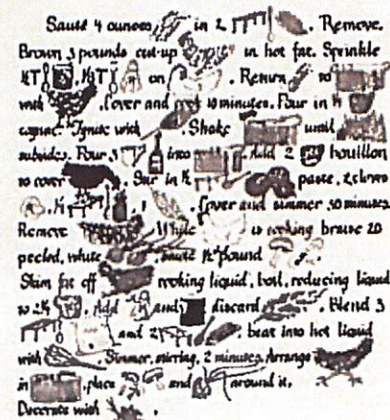 Sauté 4 ounces in 2 . Remove.
Brown 3 pounds cut-up in hot fat. Sprinkle
½T . ½T on . Return to
with . Cover and cook 10 minutes. Pour in ½
cognac. Ignite with . Shake until
subsides. Pour 3 into . Add 2 bouillon
to cover . Stir in ½ paste, 2 cloves
, ¼ , 1 . Cover and simmer 30 minutes.
Remove . While is cooking braise 20
peeled, white , sauté ½ pound
Skim fat off cooking liquid, boil, reducing liquid
to 2½ . Add and discard . Blend 3
and 2 beat into hot liquid
with . Simmer, stirring, 2 minutes. Arrange
in , place and around it.
Decorate with .